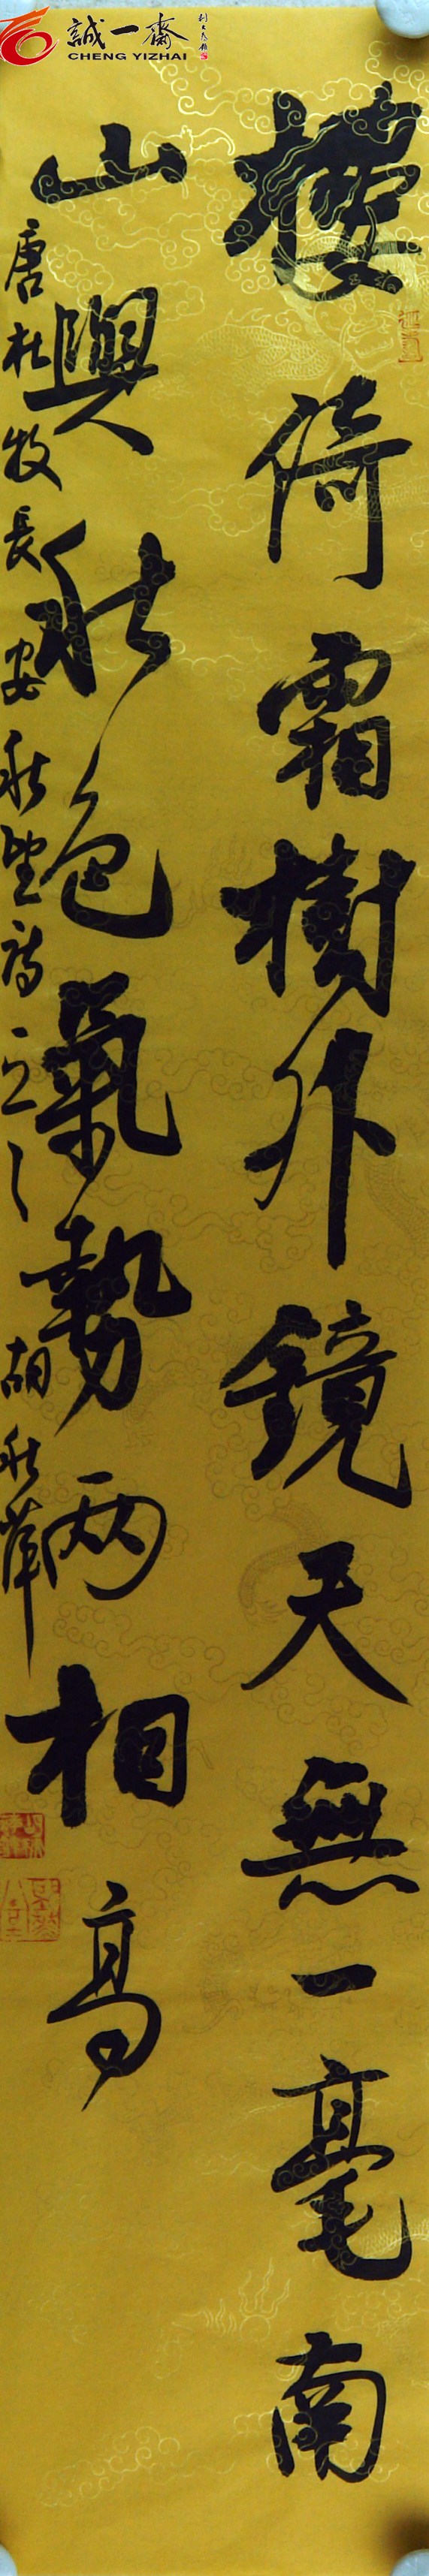 誠一齋
CHENG YIZHAI
樓倚霜樹外鏡天無一毫南
山與秋色氣勢兩相高
唐杜牧長安秋望詩一首 胡秋萍